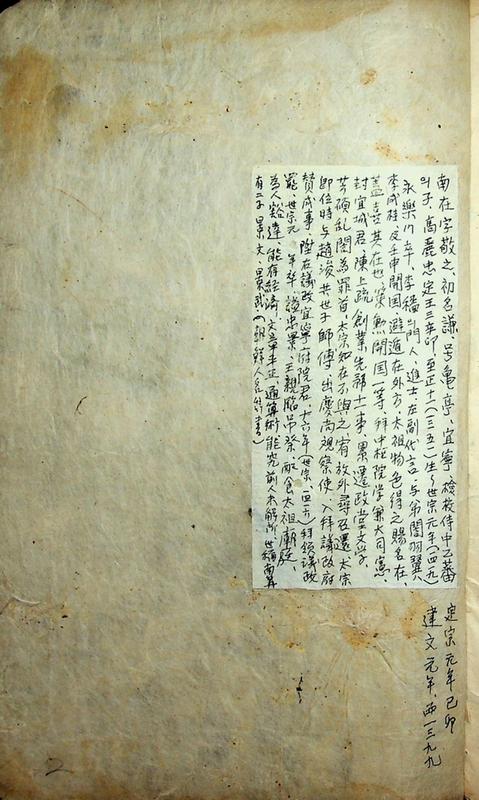 南在字敬之、初名謙、号亀亭、宜寧、檢校侍中乙蕃
의子、高麗忠定王三辛卯、至正十一(一三五一)生~世宗元年(一四一九)
永樂 卒、李穡의門人、進士、左副代言、与弟誾羽翼
李成桂及壬申開国、避遁在外方、太祖物色得之賜名在、
盖喜其在世、策勲開国一等、拜中枢院学兼大司憲、
封宜城君、陳上疏、創業先務十一事、累遷政堂文学、
芳碩乱誾為罪首、太宗知在不與之宥放外尋召還、太宗
即位時与趙浚共世子師傅、出慶尚観察使、入拜議政府
賛成事、陞右議政宜寧府院君、十六年(世宗一四一六)拜領議政
罷、世宗元 年卒、諡忠景、王親臨吊祭、配食太祖廟庭、
為人豁達、能有経済、文章 正、通算術能究前人未解所、世稱南算
有二子、景文、景武(朝鮮人名 書)
定宗元年己卯
建文元年、西一三九九
2